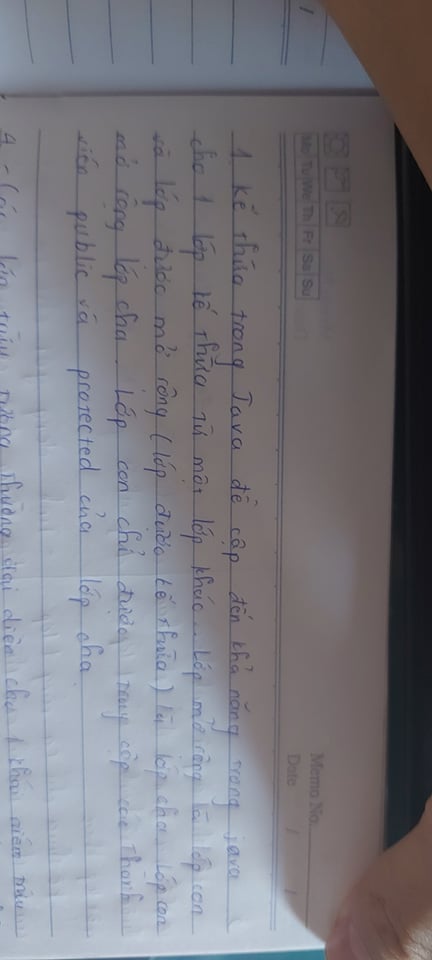 Mo Tu We Th Fr Sa Su
Memo No.
Date / /
/
1. Kế thừa trong Java đề cập đến khả năng trong java
cho 1 lớp kế thừa từ một lớp khác. Lớp mở rộng là lớp con
và lớp được mở rộng (lớp được kế thừa) là lớp cha. Lớp con
mở rộng lớp cha. Lớp con chỉ được truy cập các thành
viên public và protected của lớp cha
4 - Các lớp trừu tượng thường đại diện cho 1 khái niệm